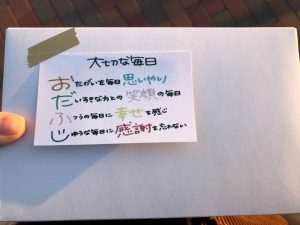 大切な毎日
おたがいを毎日思いやり
だいすきな方との笑顔の毎日
ふつうの毎日に幸せを感じ
じゆうな毎日に感謝を忘れない